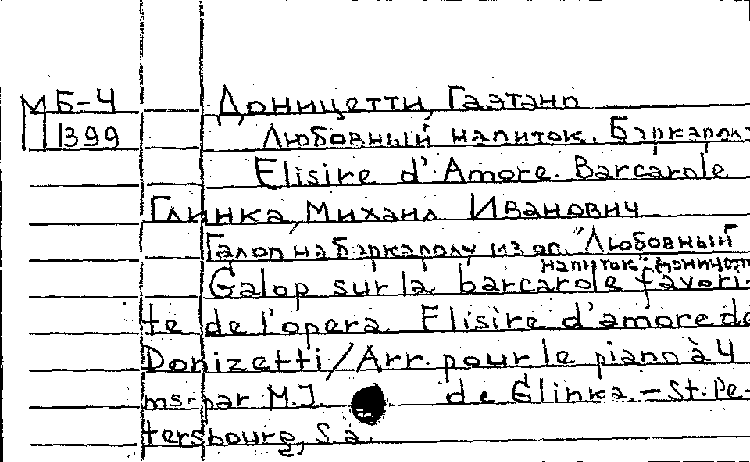 МБ-4 Доницетти, Гаэтано
1399 Любовный напиток. Баркарола
Elisire d'Amore. Barcarole
Глинка, Михаил Иванович
Галоп на баркаролу из оп. "Любовный
напиток"
Galop sur la barcarole favori-
te de l'opera Elisire d'amore de
Donizetti/Arr. pour le piano à 4
ms. par M.I. de Glinka. - St. Pe-
tersbourg, s.a.